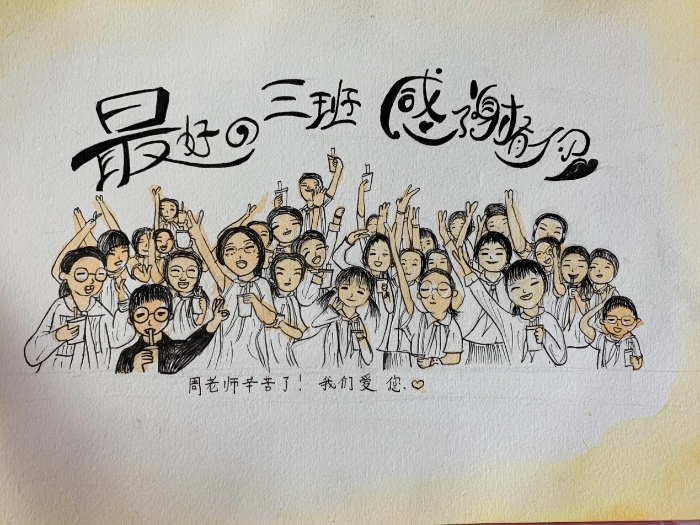 最好の三班 感谢有你
周老师辛苦了！我们爱您♡